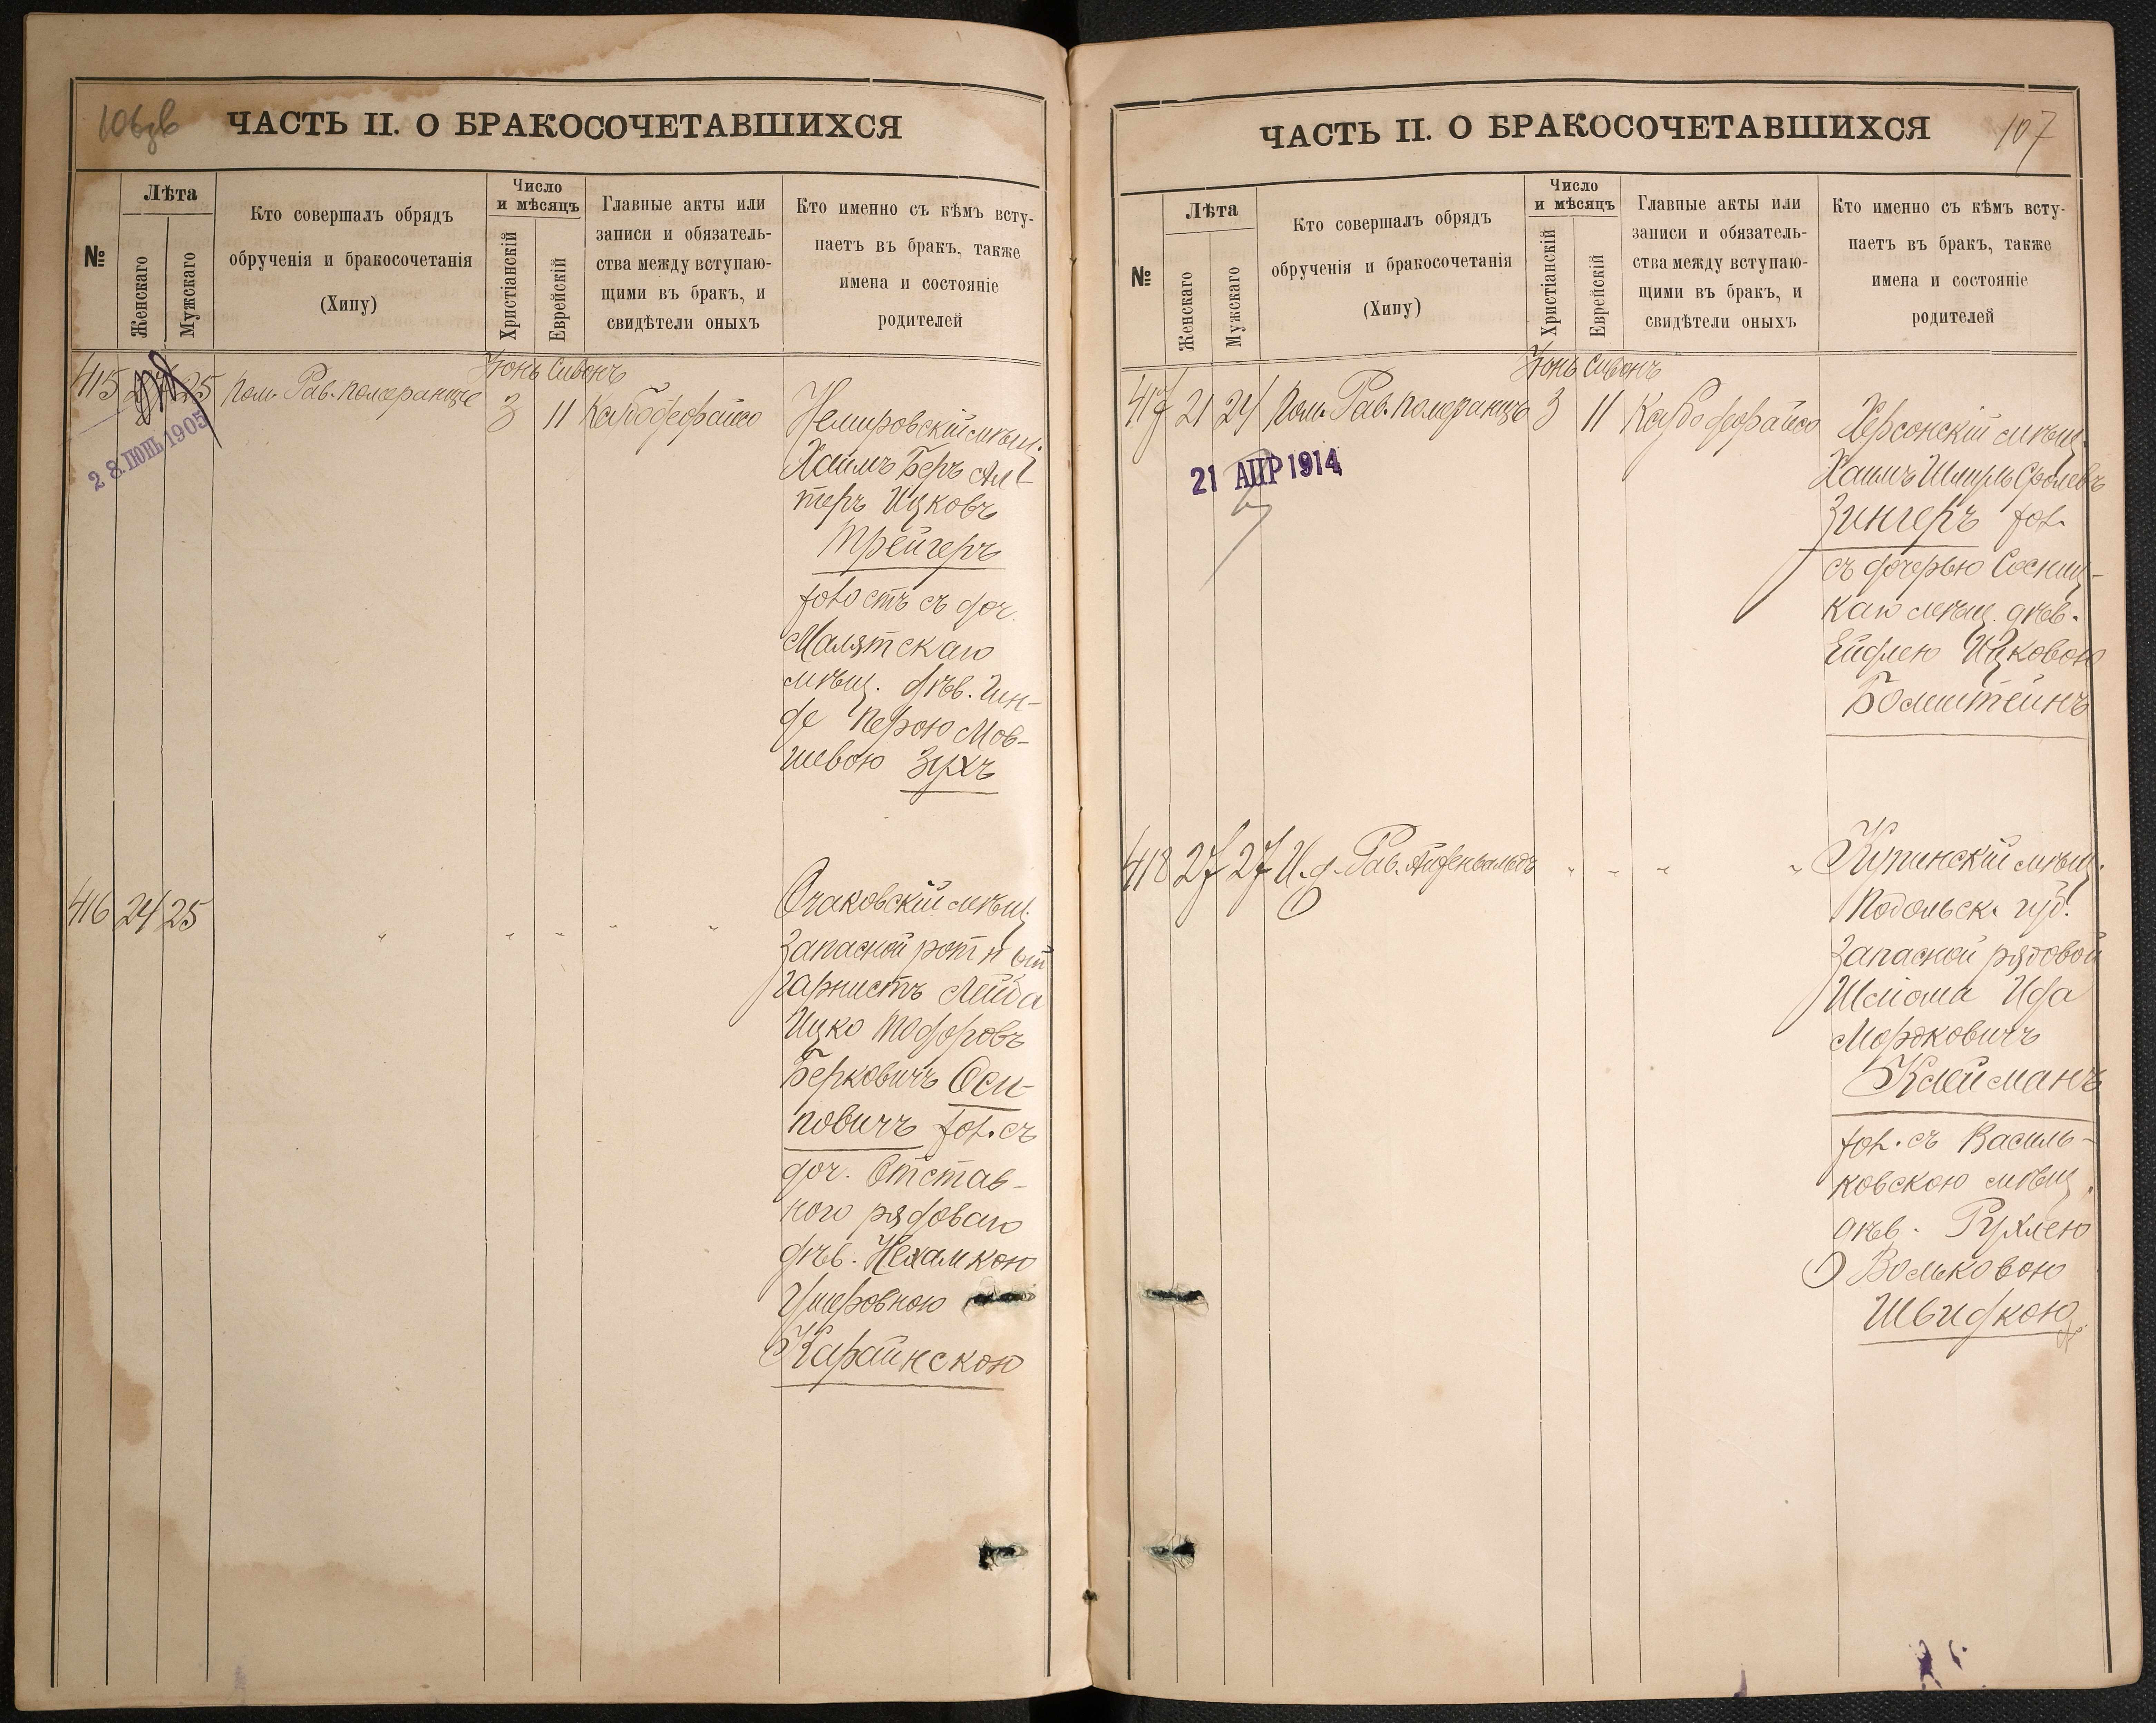 106зв
ЧАСТЬ II. О БРАКОСОЧЕТАВШИХСЯ
№
Лѣта
Женскаго
Мужскаго
Кто совершалъ обрядъ
обрученія и бракосочетанія
(Хипу)
Число
и мѣсяцъ
Христіанскій
Еврейскій
Главные акты или
записи и обязатель-
ства между вступаю-
щими въ бракъ, и
свидѣтели оныхъ
Кто именно съ кѣмъ всту-
паетъ въ бракъ, также
имена и состояніе
родителей
Іюнь Сивонъ
415 25 Пом. Рав. Померанцъ 3 11
28 ІЮНЬ 1905
Немировскій мѣщ.
Хаимъ Беръ Ал-
теръ Ицковъ
Трейгеръ
холостъ съ доч.
Малятскаго
мѣщ. дѣв. Гин-
де Перою Мов-
шевою Зухъ
416 24 25 " " " " "
Очаковскій мѣщ.
Запасной ротный
гарнистъ Лейба
Ицко Тодоровъ
Берковичъ Оси-
повичъ хол. съ
доч. Отстав-
ного рядоваго
дѣв. Нехамкою
Ушеровною
Карайнскою
107
ЧАСТЬ II. О БРАКОСОЧЕТАВШИХСЯ
№
Лѣта
Женскаго
Мужскаго
Кто совершалъ обрядъ
обрученія и бракосочетанія
(Хипу)
Число
и мѣсяцъ
Христіанскій
Еврейскій
Главные акты или
записи и обязатель-
ства между вступаю-
щими въ бракъ, и
свидѣтели оныхъ
Кто именно съ кѣмъ всту-
паетъ въ бракъ, также
имена и состояніе
родителей
Іюнь Сивонъ
417 21 24 Пом. Рав. Померанцъ 3 11
21 АПР 1914
Херсонскій мѣщ.
Хаимъ Шмуль Сролевъ
Зингеръ хол.
съ дочерью Сосниц-
каго мѣщ. дѣв.
Ейдлею Ицковою
Бомштейнъ
418 27 27 И. д. Рав. Айзенвальдъ " " " "
Купинскій мѣщ.
Подольск. губ.
Запасной рядовой
Шлiома Ида
Мордковичъ
Клейманъ
хол. съ Василь-
ковскою мѣщ.
дѣв. Рухлею
Вольковою
Швидкою